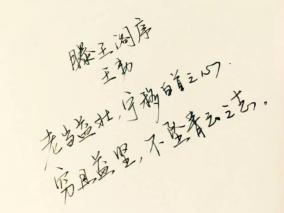 滕王阁序
王勃
老当益壮，宁移白首之心。
穷且益坚，不坠青云之志。